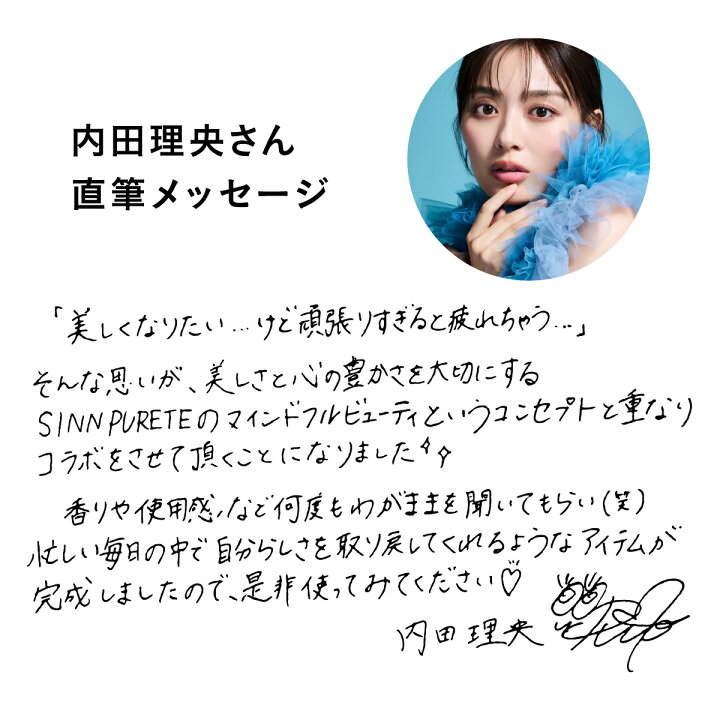 内田理央さん
直筆メッセージ
「美しくなりたい…けど頑張りすぎると疲れちゃう…」
そんな思いが、美しさと心の豊かさを大切にする
SINN PURETEのマインドフルビューティというコンセプトと重なり
コラボをさせて頂くことになりました
香りや使用感など何度もわがままを聞いてもらい(笑)
忙しい毎日の中で自分らしさを取り戻してくれるようなアイテムが
完成しましたので、是非使ってみてください♡
内田理央